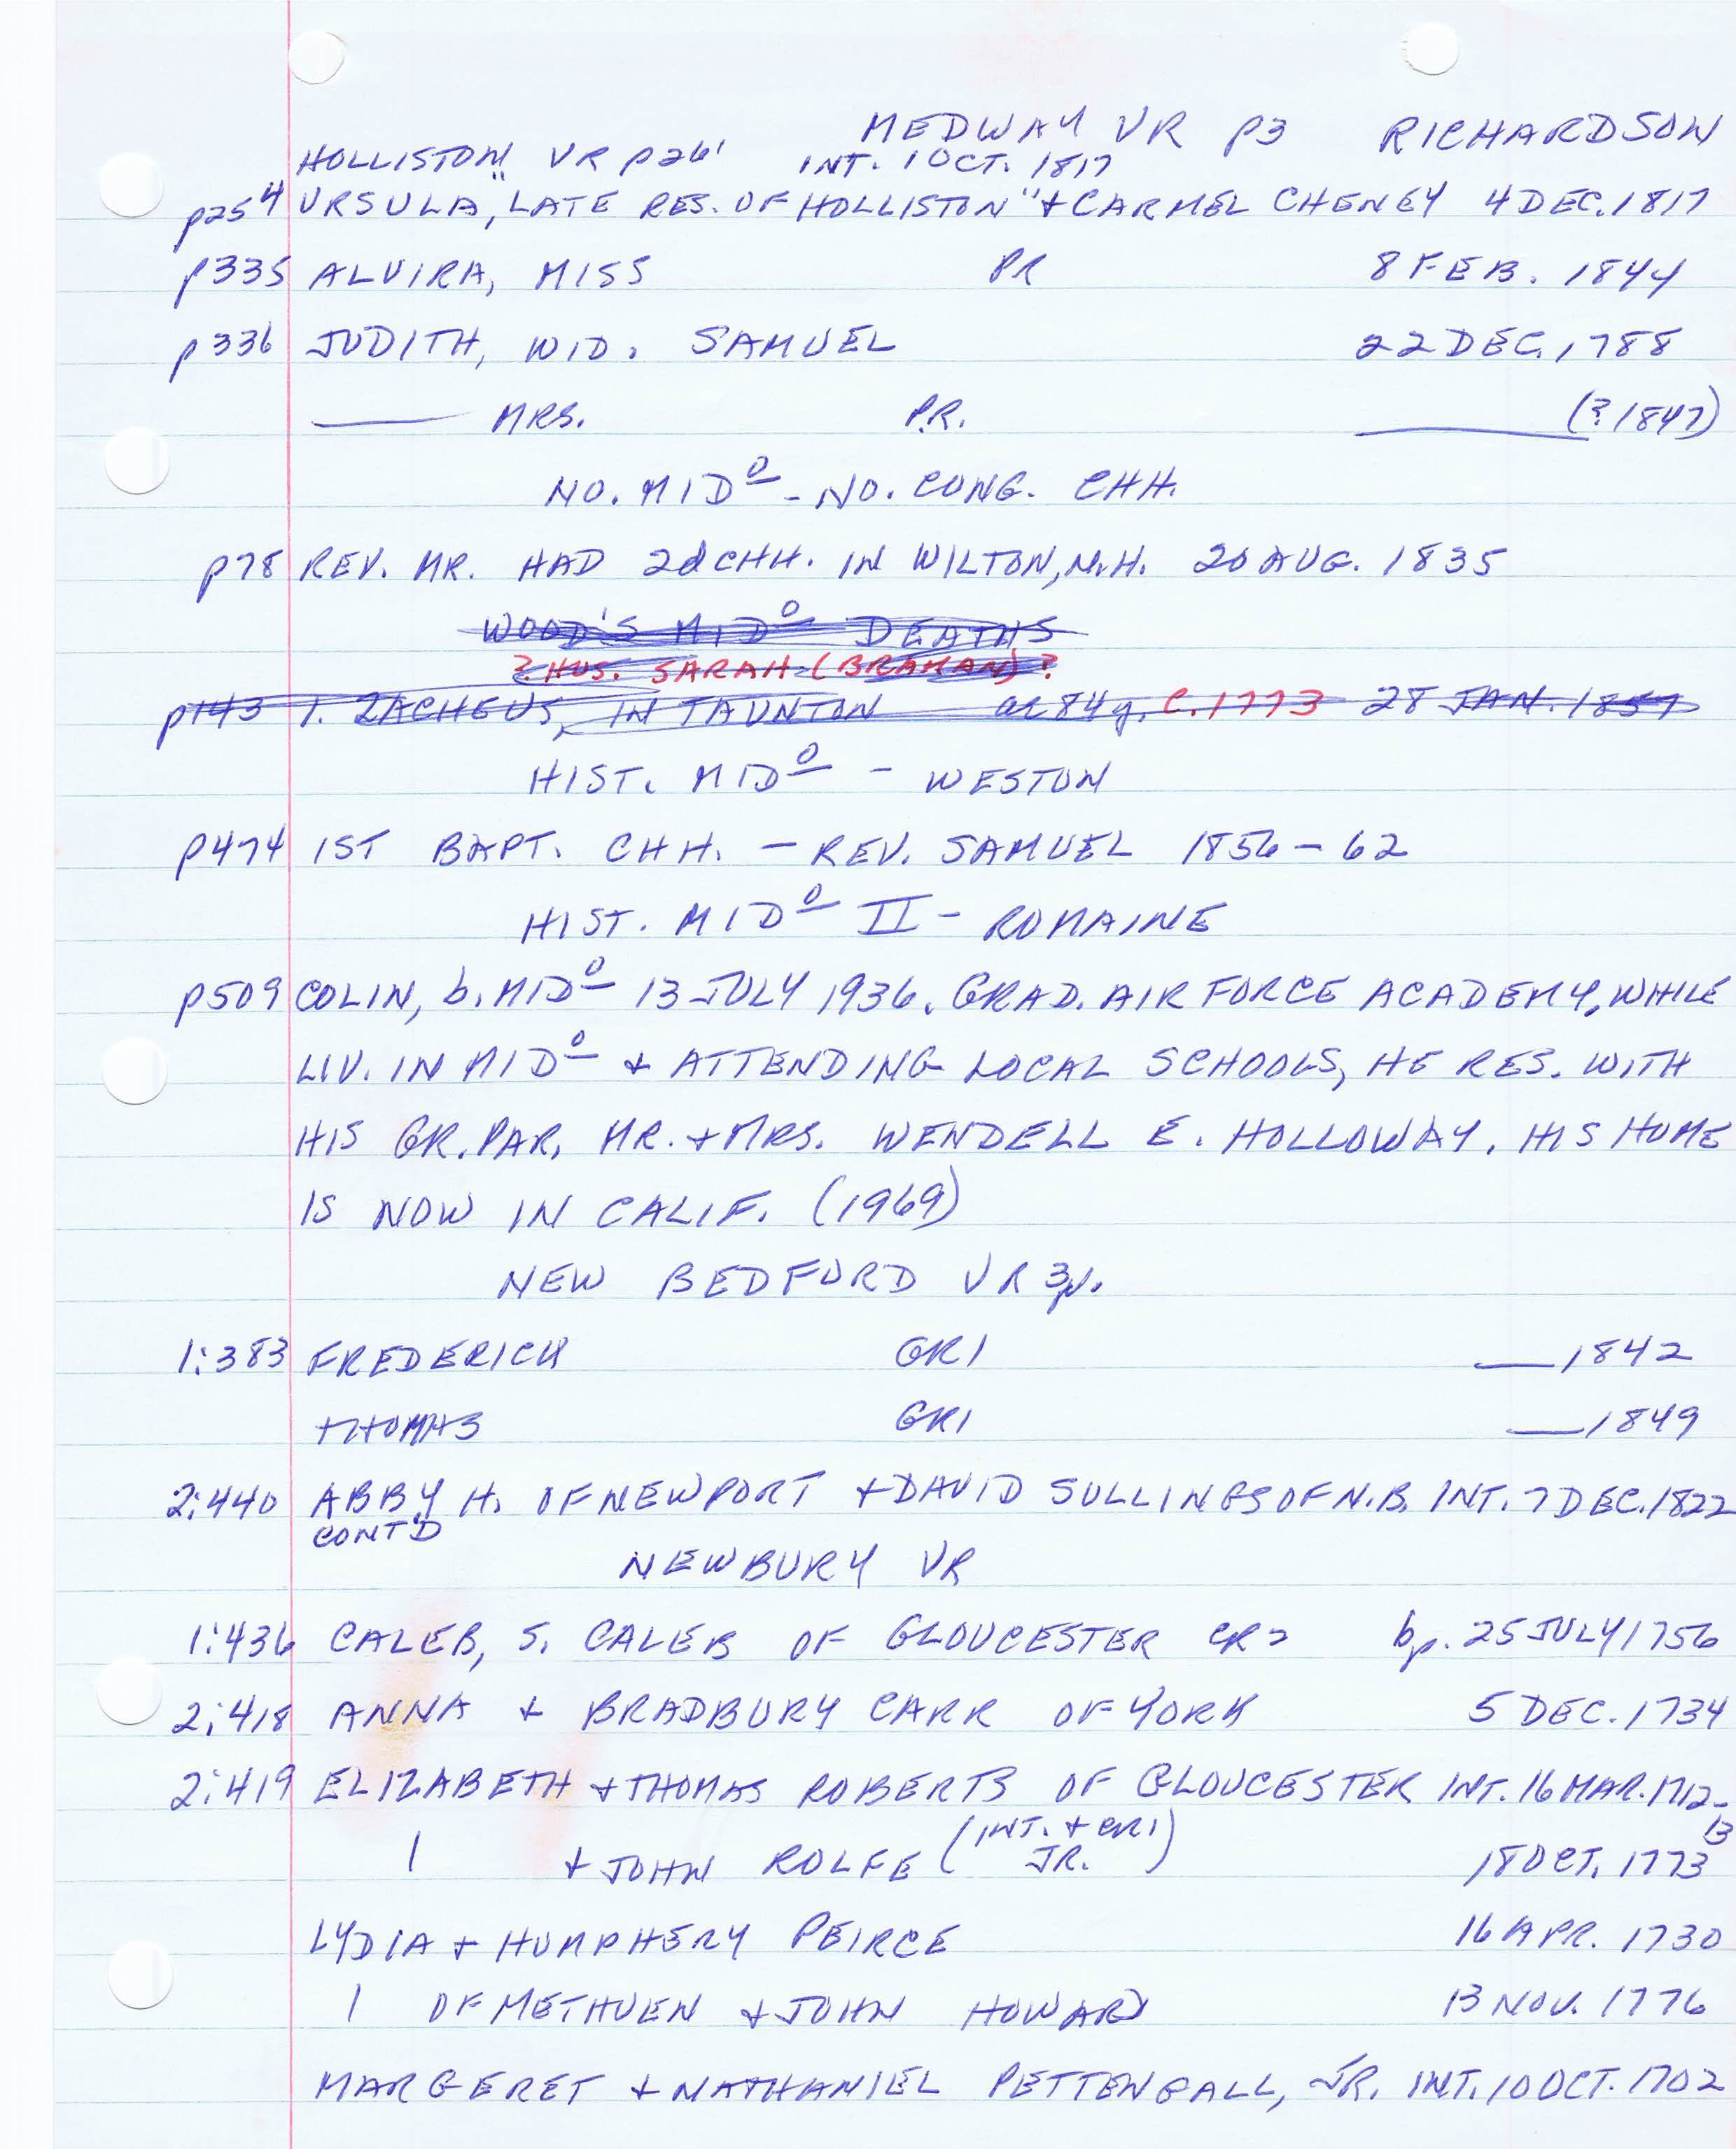 MEDWAY VR p3 RICHARDSON
HOLLISTON VR p261 INT. 1 OCT. 1817
p254 URSULA, "LATE RES. OF HOLLISTON" + CARMEL CHENEY 4 DEC. 1817
p335 ALVIRA, MISS PR 8 FEB. 1844
p336 JUDITH, WID. SAMUEL 22 DEC. 1788
—— MRS. P.R. ——(?1847)
NO. MIDº - NO. CONG. CHH.
p78 REV. MR. HAD 2d CHH. IN WILTON, N.H. 20 AUG. 1835
WOOD'S MIDº DEATHS
? HUS. SARAH (BRAMAN) ?
p143 1. ZACHEUS, IN TAUNTON ae 84y. C.1773 28 JAN. 1857
HIST. MIDº - WESTON
p474 1ST BAPT. CHH. - REV. SAMUEL 1856-62
HIST. MIDº II - ROMAINE
p509 COLIN, b. MIDº 13 JULY 1936. GRAD. AIR FORCE ACADEMY, WHILE
LIV. IN MIDº + ATTENDING LOCAL SCHOOLS, HE RES. WITH
HIS GR. PAR, MR. + MRS. WENDELL E. HOLLOWAY. HIS HOME
IS NOW IN CALIF. (1969)
NEW BEDFORD VR 3v.
1:383 FREDERICK GR1 —1842
THOMAS GR1 —1849
2:440 ABBY H. OF NEWPORT + DAVID SULLINGS OF N.B. INT. 7 DEC. 1822
CONT'D
NEWBURY VR
1:436 CALEB, S. CALEB OF GLOUCESTER CR2 bp. 25 JULY 1756
2:418 ANNA + BRADBURY CARR OF YORK 5 DEC. 1734
2:419 ELIZABETH + THOMAS ROBERTS OF GLOUCESTER INT. 16 MAR. 1712-13
1 + JOHN ROLFE (INT. + CR1 JR.) 18 OCT. 1773
LYDIA + HUMPHERY PEIRCE 16 APR. 1730
1 OF METHUEN + JOHN HOWARD 13 NOV. 1776
MARGERET + NATHANIEL PETTENGALL, JR. INT. 10 OCT. 1702